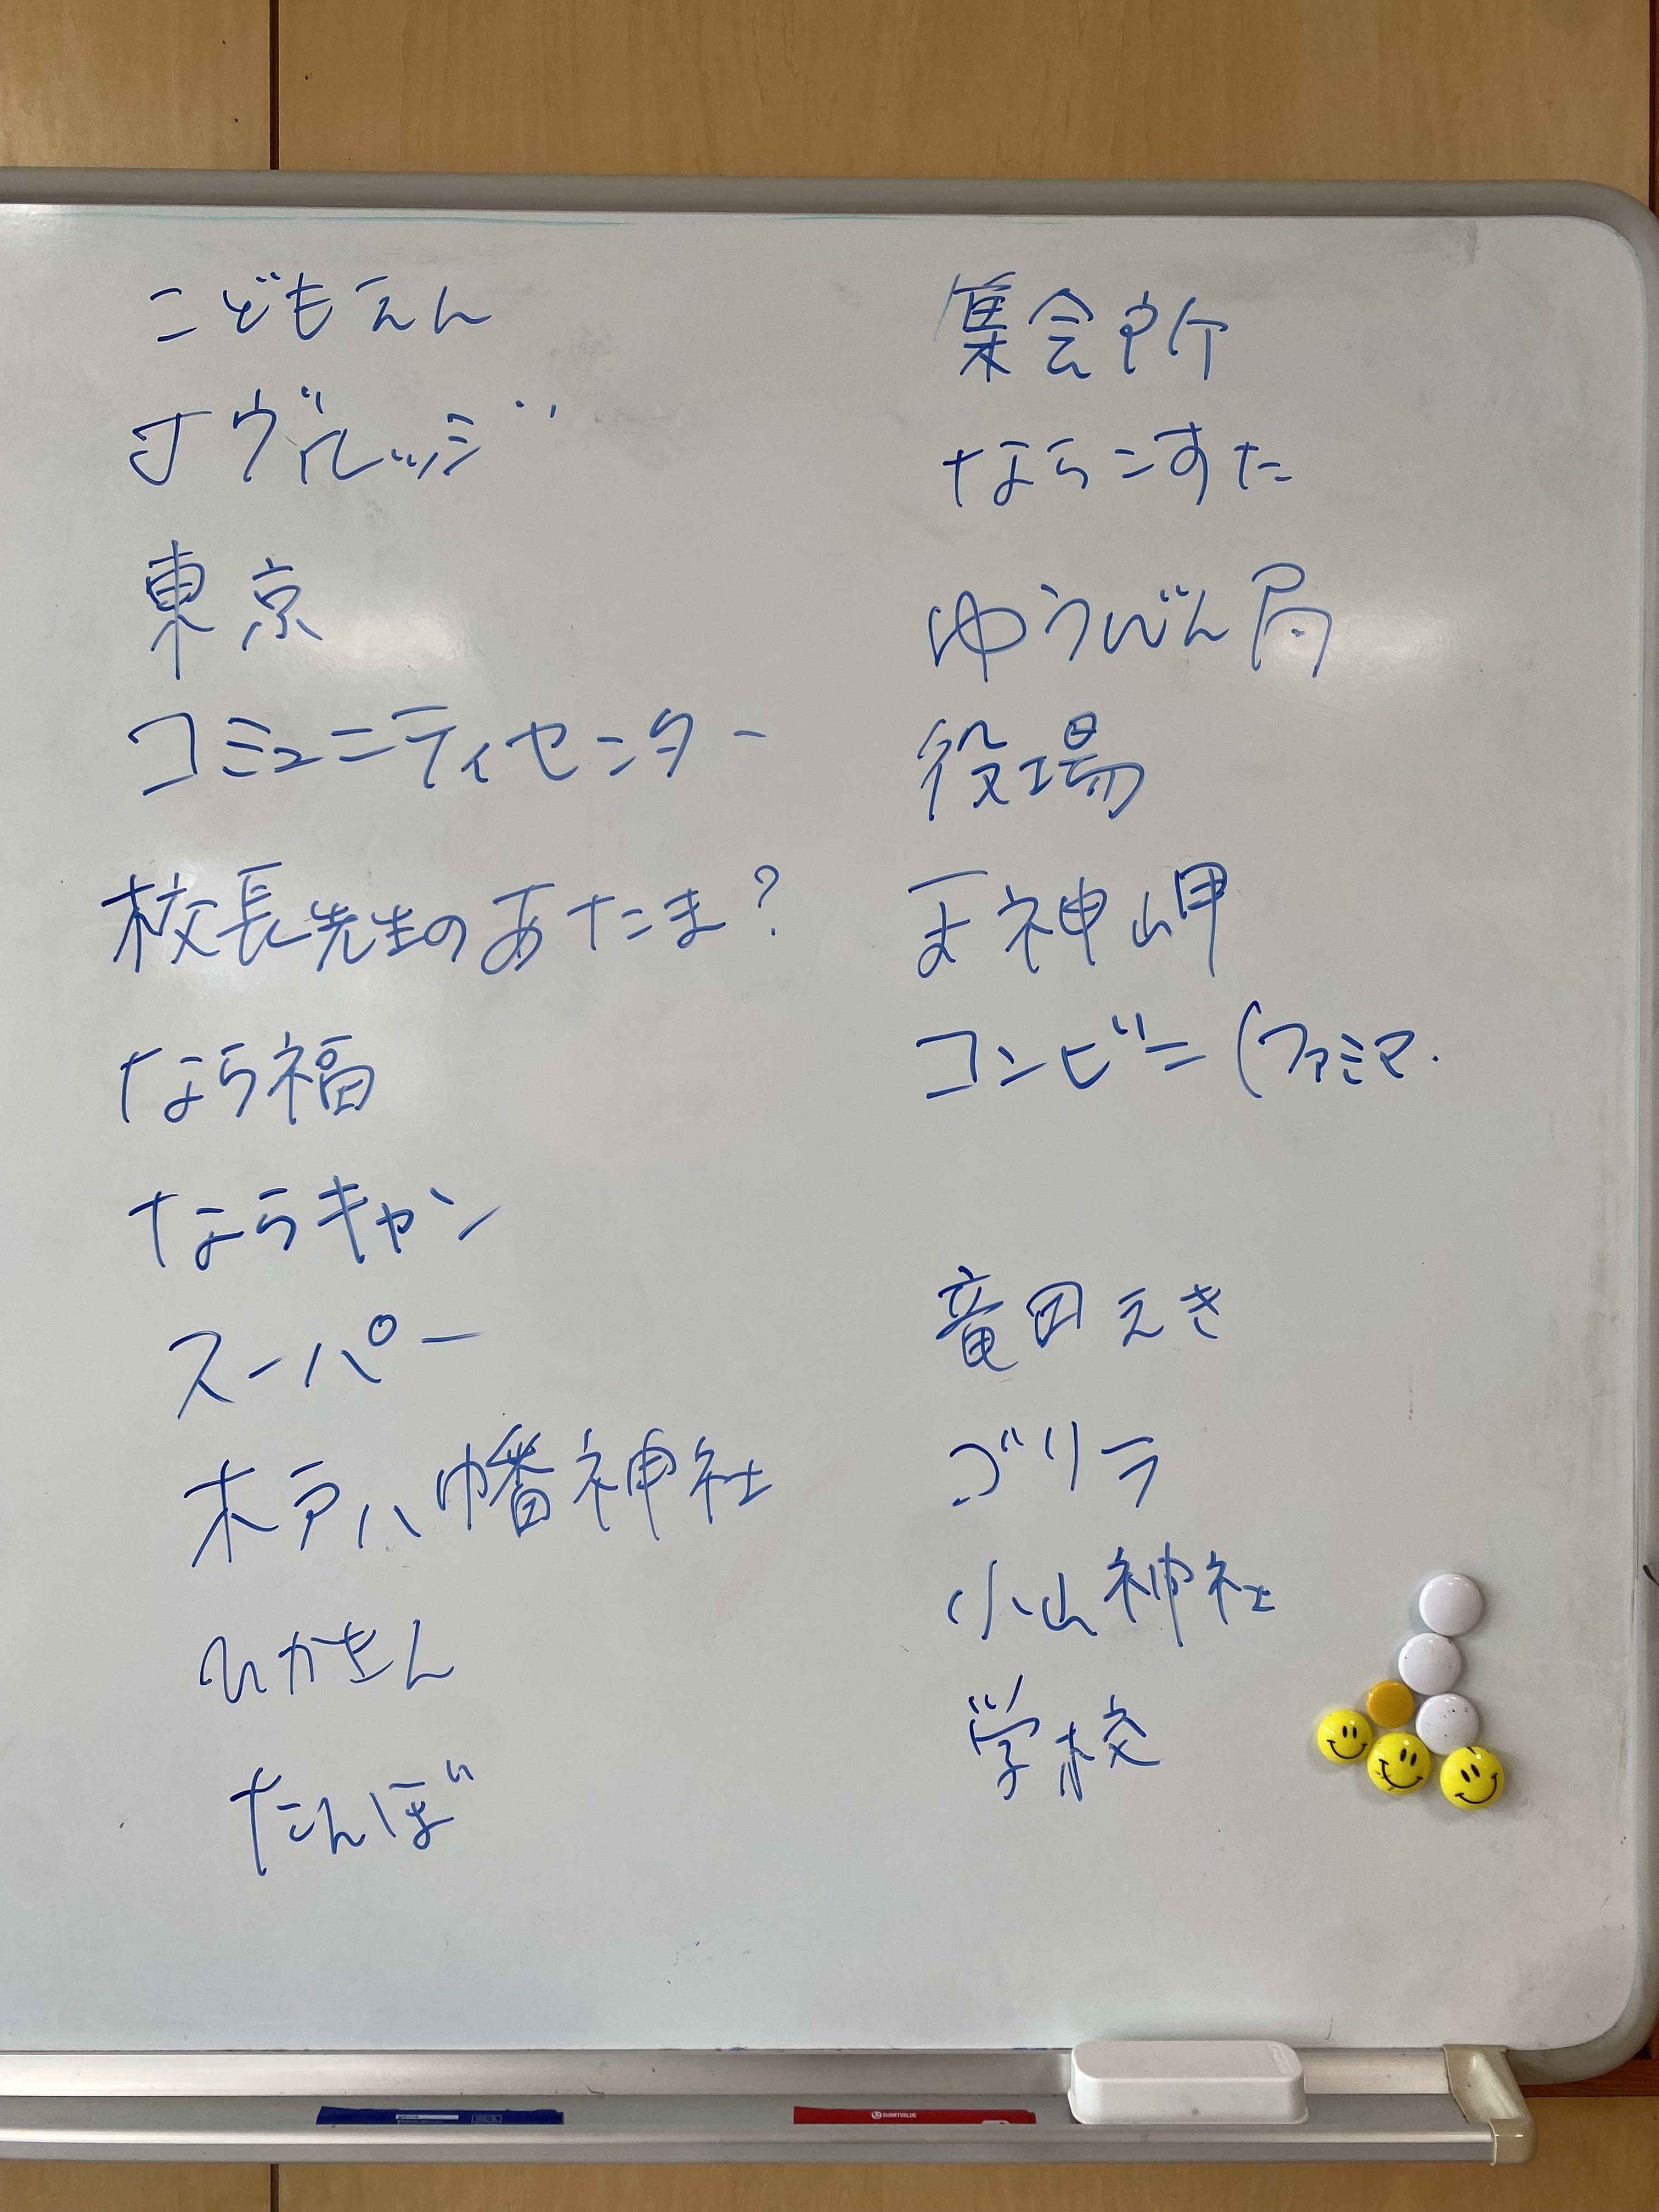 こどもえん
Jヴィレッジ
東京
コミュニティセンター
校長先生のあたま?
なら福
ならキャン
スーパー
木戸八幡神社
ひかきん
たんぼ
集会所
ならこすた
ゆうびん局
役場
天神岬
コンビニ(ファミマ.
竜田えき
ゴリラ
小山神社
学校